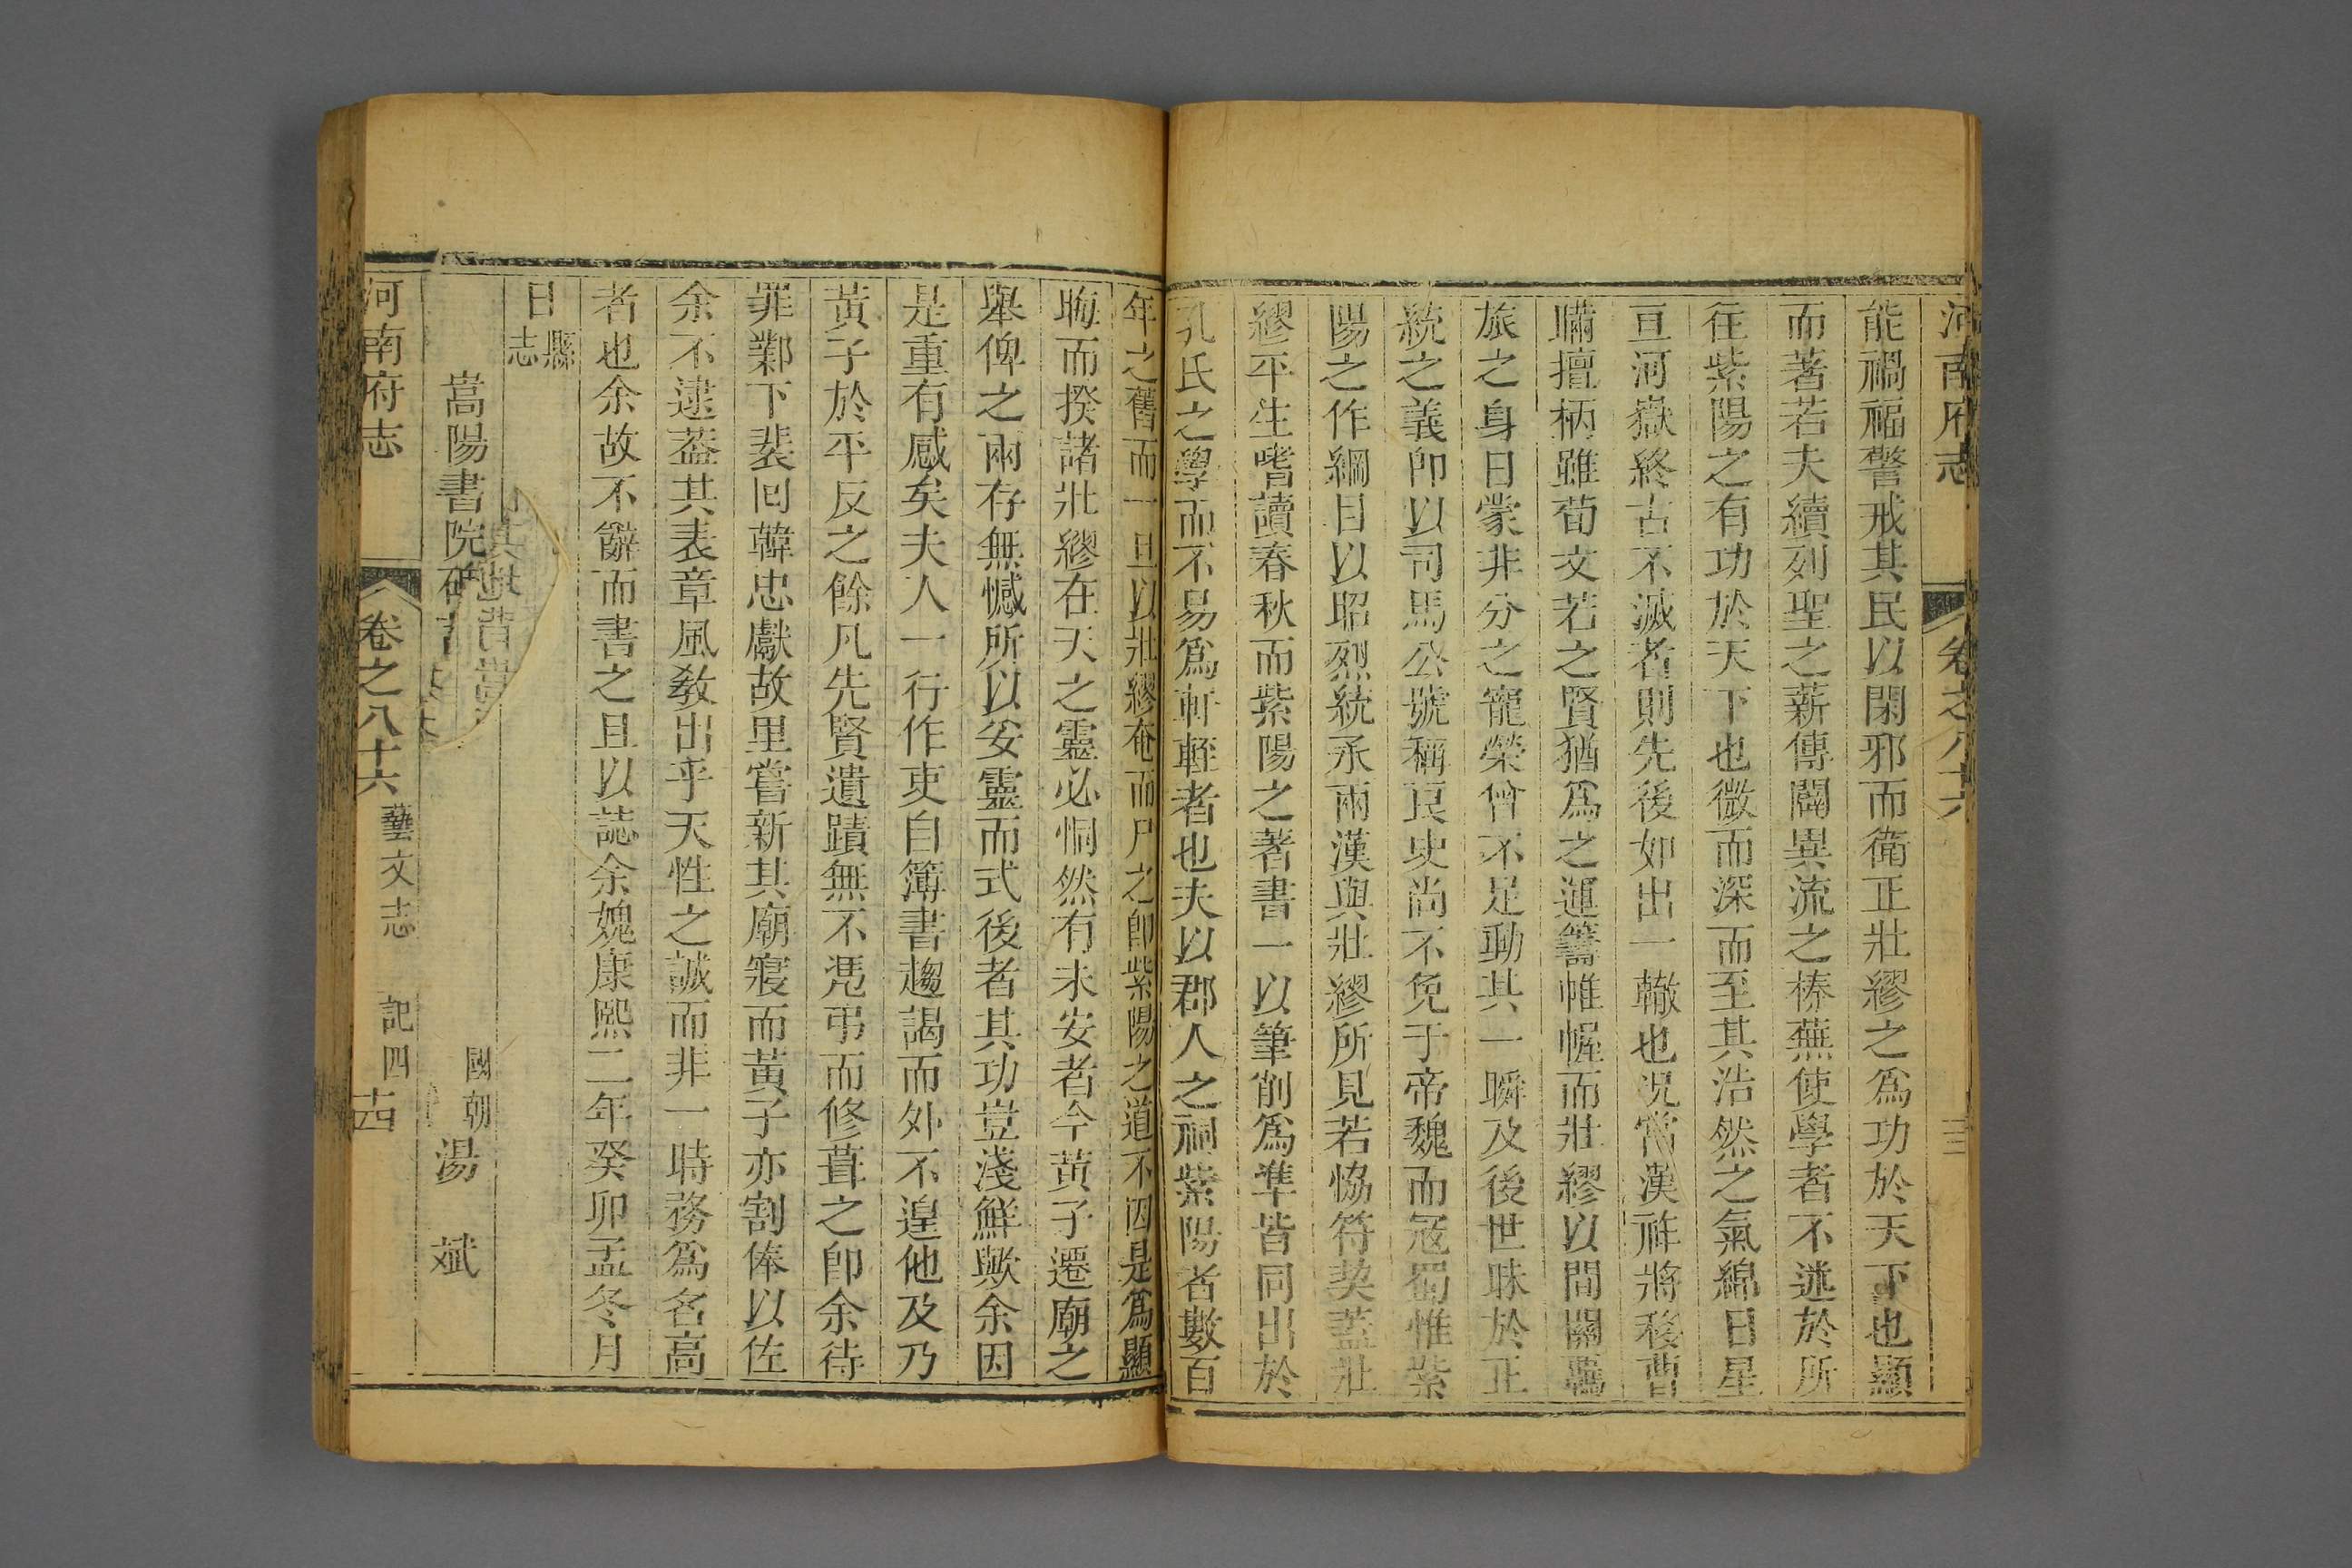 河南府志 卷之八十六
能禍福警戒其民以閑邪而衛正壯繆之爲功於天下也顯
而著若夫續列聖之薪傳闢異流之榛蕪使學者不迷於所
往紫陽之有功於天下也微而深而至其浩然之氣綿日星
亘河嶽終古不滅者則先後如出一轍也况當漢祚將移曹
瞞擅柄雖荀文若之賢猶爲之運籌帷幄而壯繆以間關羈
旅之身日蒙非分之寵榮曾不足動其一瞬及後世昧於正
統之義卽以司馬公號稱良史尚不免于帝魏而宼蜀惟紫
陽之作綱目以昭烈統承兩漢與壯繆所見若恊符契蓋壯
繆平生嗜讀春秋而紫陽之著書一以筆削爲準皆同出於
孔氏之學而不易爲軒輊者也夫以郡人之祠紫陽者數百
年之舊而一旦以壯繆奄而尸之卽紫陽之道不因是爲顯
晦而揆諸壯繆在天之靈必恫然有未安者今黃子遷廟之
舉俾之兩存無憾所以妥靈而式後者其功豈淺鮮歟余因
是重有感矣夫人一行作吏自簿書趨謁而外不遑他及乃
黃子於平反之餘凡先賢遺蹟無不凭弔而修葺之卽余待
罪鄴下裴囘韓忠獻故里嘗新其廟寢而黃子亦割俸以佐
余不逮葢其表章風敎出乎天性之誠而非一時務爲名高
者也余故不辭而書之且以誌余媿康熙二年癸卯孟冬月
日縣志
嵩陽書院 國朝湯 斌
河南府志 卷之八十六 藝文志 記四 十四